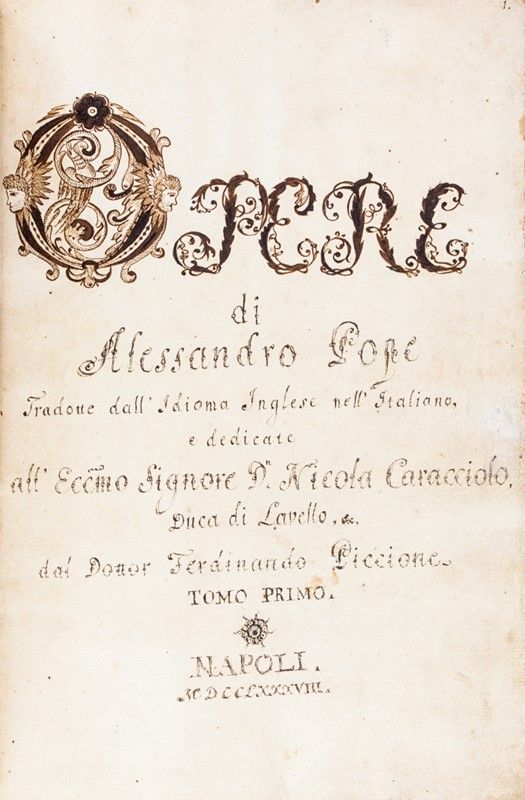 1.
OPERE
di
Alessandro Pope
Tradotte dall' Idioma Inglese nell' Italiano,
e dedicate
all' Eccm̃o Signore D.ⁿ Nicola Caracciolo,
Duca di Lavello, &c.
dal Dottor Ferdinando Piccione.
TOMO PRIMO.
NAPOLI.
MDCCLXXXVIII.